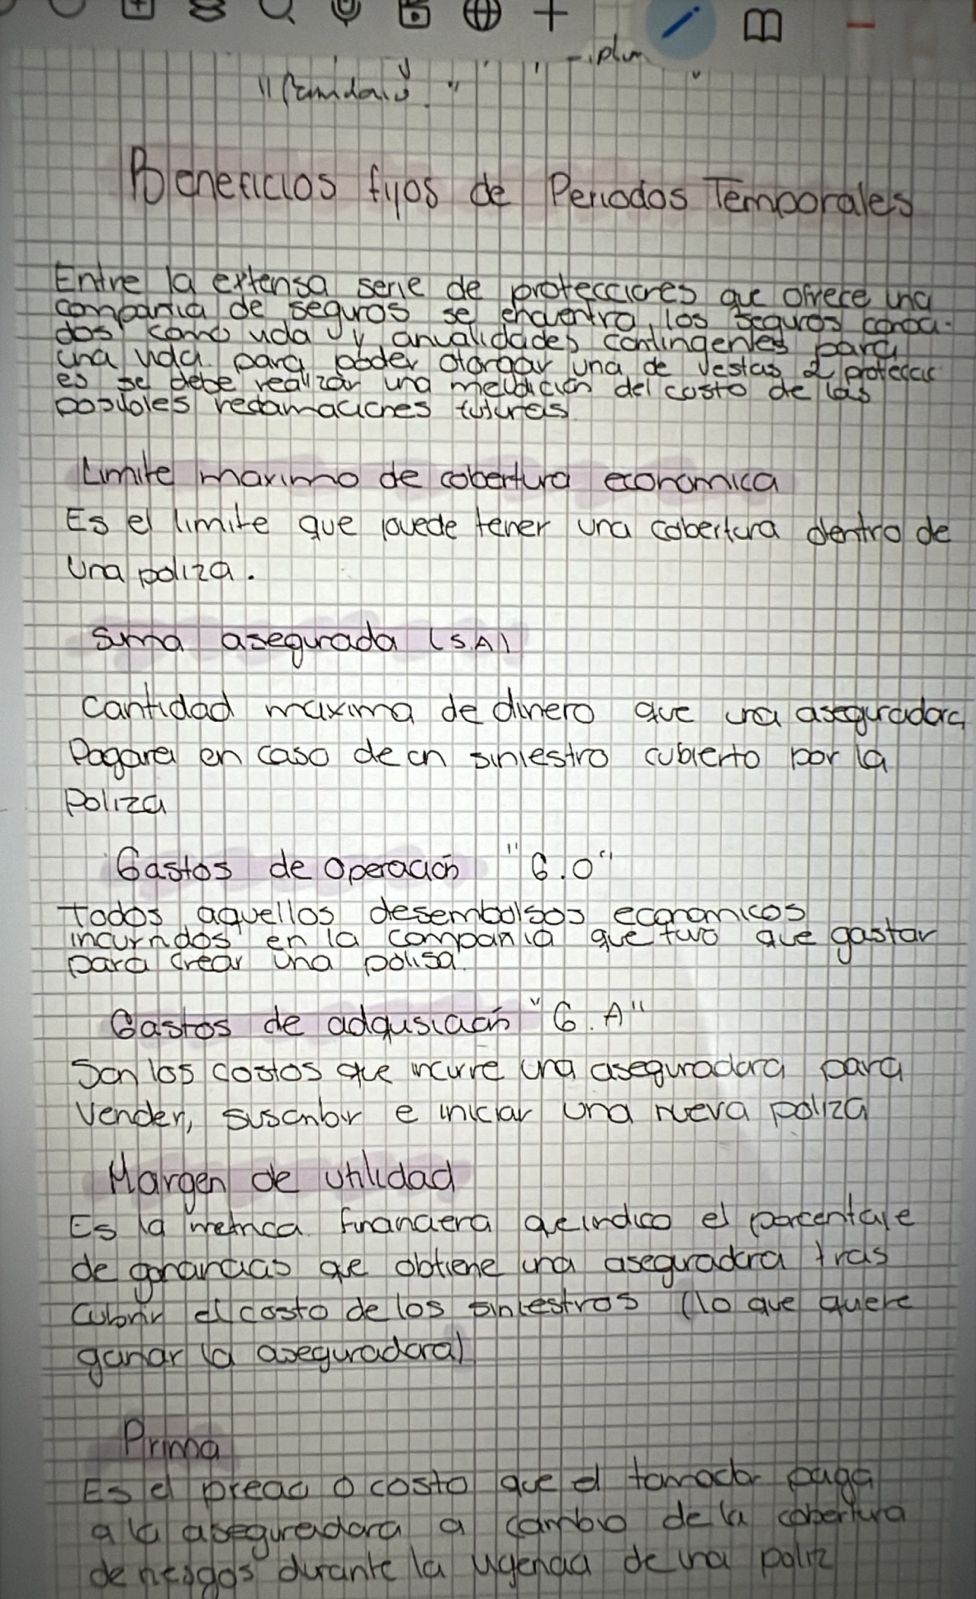 Beneficios fijos de Periodos Temporales
Entre la extensa serie de protecciones que ofrece una
compania de seguros se encuentra los seguros
dos como vida y anualidades contingentes para
una vida para poder otorgar una de estas 2 proteccio
es se debe realizar una medicion del costo de las
posibles reclamaciones futuras.
Limite maximo de cobertura economica
Es el limite que puede tener una cobertura dentro de
una poliza.
Suma asegurada (S.A)
Cantidad maxima de dinero que una aseguradora
Pagara en caso de un siniestro cubierto por la
Poliza
Gastos de Operación "G.O"
todos aquellos desembolsos economicos
incurridos en la compania que tuvo que gastar
para crear una polisa.
Gastos de adqusiación "G.A"
Son los costos que incurre una aseguradora para
Vender, suscribir e iniciar una nueva poliza
Margen de utilidad
Es la metrica financiera que indica el porcentaje
de ganancias que obtiene una aseguradora tras
cubrir el costo de los siniestros (lo que quiere
ganar la aseguradora)
Prima
Es el precio o costo que el tomador paga
a la aseguradora a cambio de la cobertura
de riesgos durante la vigencia de una poliz